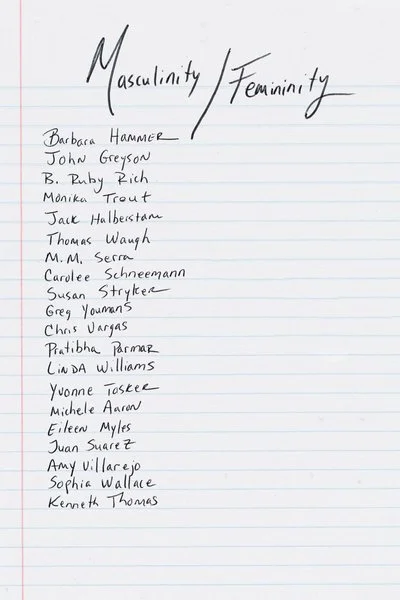 Masculinity / Femininity
Barbara Hammer
John Greyson
B. Ruby Rich
Monika Treut
Jack Halberstam
Thomas Waugh
M.M. Serra
Carolee Schneemann
Susan Stryker
Greg Youmans
Chris Vargas
Pratibha Parmar
Linda Williams
Yvonne Tasker
Michele Aaron
Eileen Myles
Juan Suarez
Amy Villarejo
Sophia Wallace
Kenneth Thomas